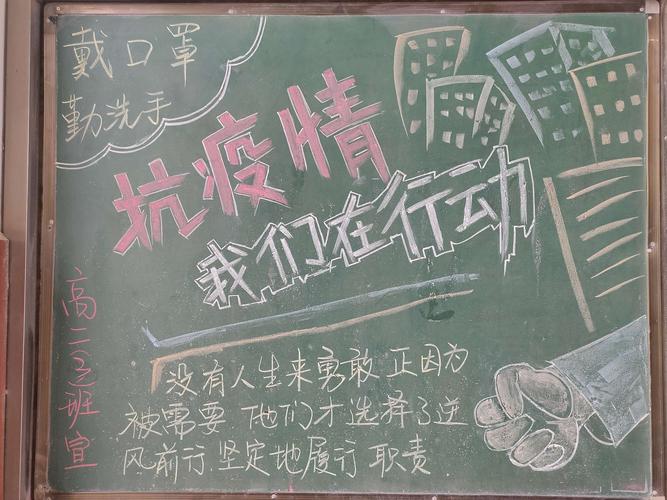 戴口罩
勤洗手
抗疫情
我们在行动
没有人生来勇敢 正因为
被需要 他们才选择了逆
风前行 坚定地履行 职责
高二
班宣